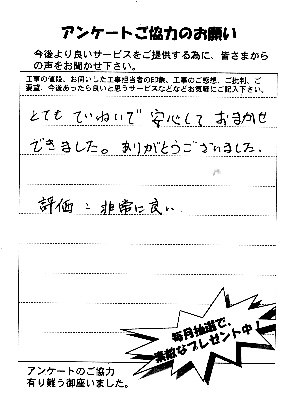 アンケートご協力のお願い
今後より良いサービスをご提供する為に、皆さまから
の声をお聞かせ下さい。
工事の値段、お伺いした工事担当者の印象、工事のご感想、ご批判、ご
要望、今後あったら良いと思うサービスなどなどお気軽にご記入下さい。
とても ていねいで 安心して おまかせ
できました。ありがとうございました.
評価：非常に良い
毎月抽選で、
素敵なプレゼント中！
アンケートのご協力
有り難う御座いました。